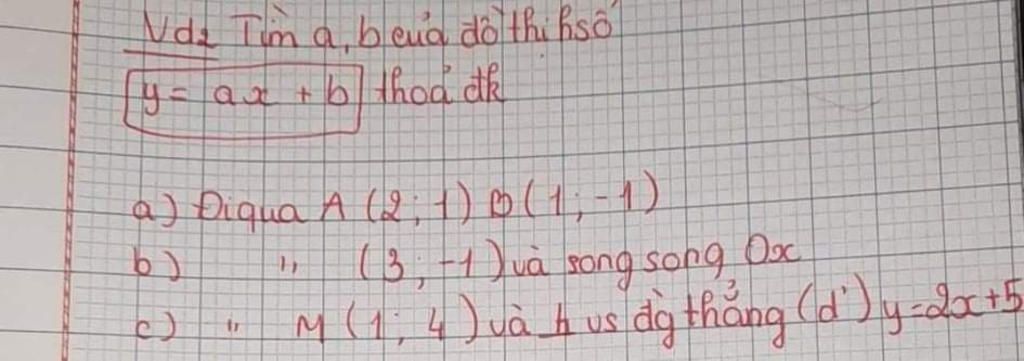 Vd2 Tìm a, b của đồ thị hsố
y = ax + b thoả đk
a) Đi qua A (2; 1) B (1; -1)
b) " (3; -1) và song song Ox
c) " M (1; 4) và ⊥ vs đg thẳng (d') y = 2x + 5